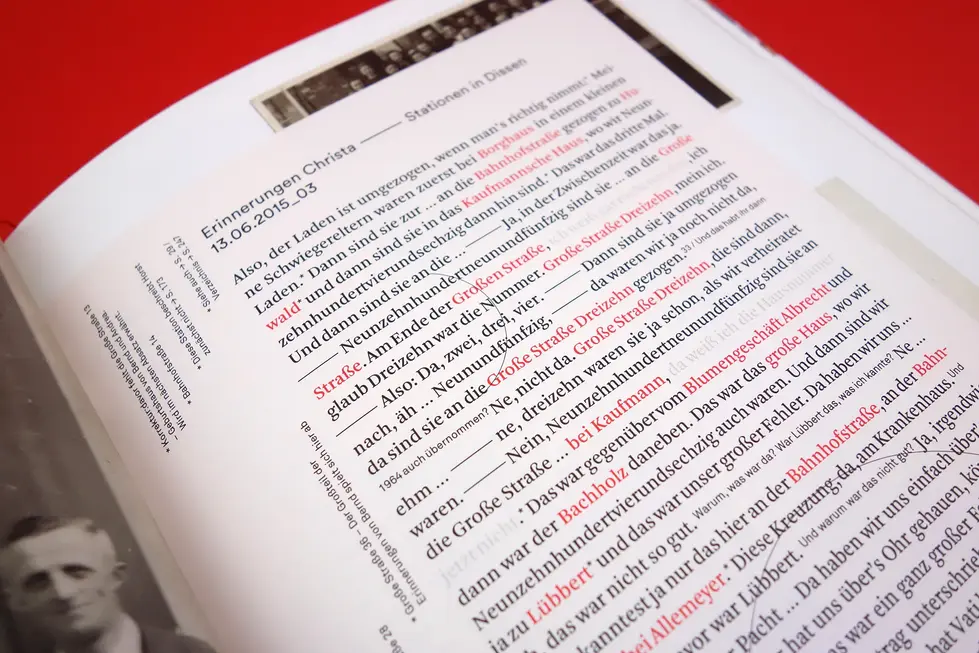 Erinnerungen Christa —— Stationen in Dissen
13.06.2015_03
Also, der Laden ist umgezogen, wenn man's richtig nimmt.* Mei-
ne Schwiegereltern waren zuerst bei Borghaus in einem kleinen
Laden.* Dann sind sie zur ... an die Bahnhofstraße gezogen zu Hu-
wald* und dann sind sie in das Kaufmannsche Haus, wo wir Neun-
zehnhundertvierundsechzig dann hin sind.* Das war das dritte Mal.
Und dann sind sie an die ... —— Ja, in der Zwischenzeit war das ja.
—— Neunzehnhundertneunundfünfzig sind sie ... an die Große
Straße. Am Ende der Großen Straße, ich
glaub Dreizehn war die Nummer. Große Straße Dreizehn, mein ich.
—— Also: Da, zwei, drei, vier. —— Dann sind sie ja umgezogen
nach, äh ... Neunundfünfzig, —— da waren wir ja noch nicht da,
da sind sie an die Große Straße Dreizehn gezogen. 33 / Und das habt ihr dann
1964 auch übernommen? Ne, nicht da. Große Straße Dreizehn, die sind dann,
ehm ... —— ne, dreizehn waren sie ja schon, als wir verheiratet
waren. —— Nein, Neunzehnhundertneunundfünfzig sind sie an
die Große Straße ... bei Kaufmann, da weiß ich die Hausnummer
jetzt nicht.* Das war gegenüber vom Blumengeschäft Albrecht und
dann war der Bachholz daneben. Das war das große Haus, wo wir
Neunzehnhundertvierundsechzig auch waren. Und dann sind wir
ja zu Lübbert* und das war unser großer Fehler. Da haben wir uns ...
das war nicht so gut. Warum, was war da? War Lübbert das, was ich kannte? Ne ...
kanntest ja nur das hier an der Bahnhofstraße, an der Bahn-
bei Allemeyer.* Diese Kreuzung da, am Krankenhaus. Und
vor war Lübbert. Und warum war das nicht gut? Ja, irgend
Pacht ... Da haben wir uns einfach übe
hat uns über's Ohr gehauen,
as war ein ganz großer
trag unterschrie
hat Va
* Siehe auch → S. 29 /
Verzeichnis → S. 247
* Diese Station beschreibt Horst
zunächst nicht → S. 173
* Bahnhofstraße 14
* Korrektur: davor fehlt die Große Straße 13
– Geburtshaus von Bernd und Andrea.
Wird im nächsten Absatz erwähnt.
* Große Straße 36 – Der Großteil der
Erinnerungen von Bernd spielt sich hier ab
ße 28